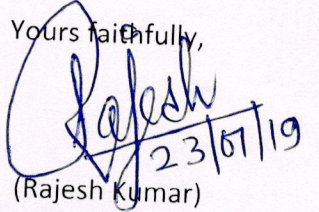 Yours faithfully,
Rajesh
23/07/19
(Rajesh Kumar)